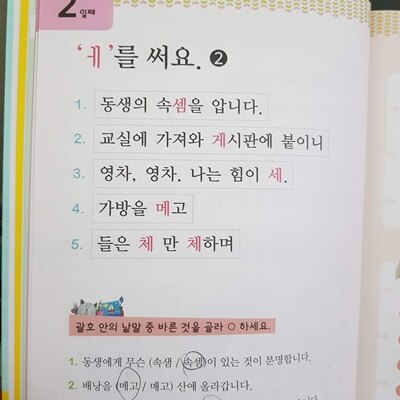 2일째
'ㅔ'를 써요. ❷
1. 동생의 속셈을 압니다.
2. 교실에 가져와 게시판에 붙이니
3. 영차, 영차. 나는 힘이 세.
4. 가방을 메고
5. 들은 체 만 체하며
괄호 안의 낱말 중 바른 것을 골라 ○ 하세요.
1. 동생에게 무슨 (속샘 / 속셈)이 있는 것이 분명합니다.
2. 배낭을 (메고 / 매고) 산에 올라갑니다.